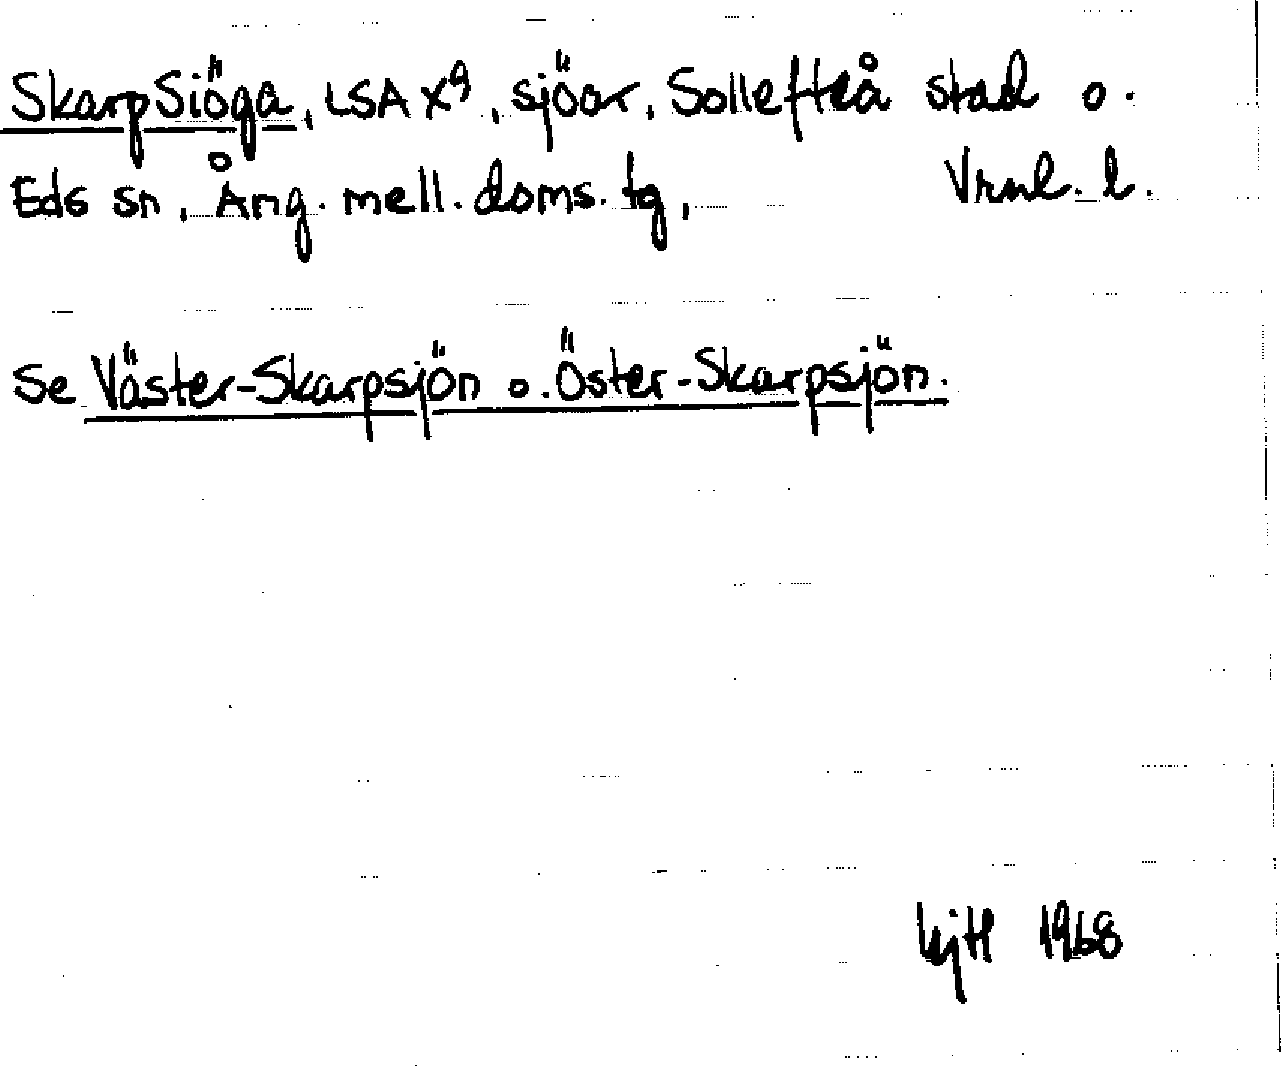 SkarpSiöga, LSA X9, sjöar, Sollefteå stad o.
Eds sn, Ång. mell. doms. tg, Vrnl. l.
Se Väster-Skarpsjön o. Öster-Skarpsjön.
1968